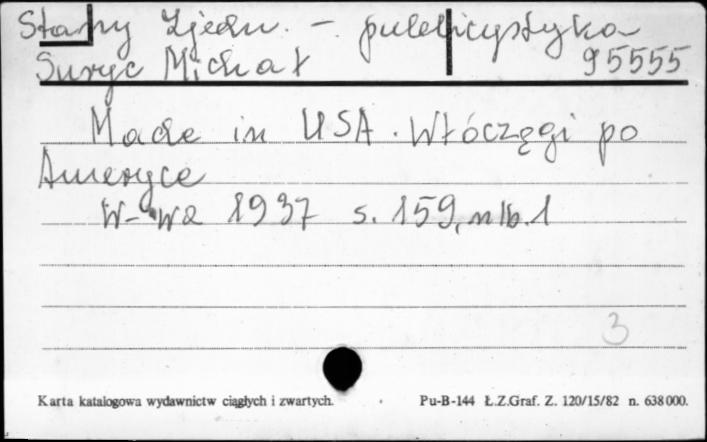 Stany Zjedn. – publicystyka
Suryc Michał 95555
Made in USA. Włóczęgi po
Ameryce
W-wa 1937 s. 159, nlb. 1
3
Karta katalogowa wydawnictw ciągłych i zwartych. Pu-B-144 Ł.Z.Graf. Z. 120/15/82 n. 638000.